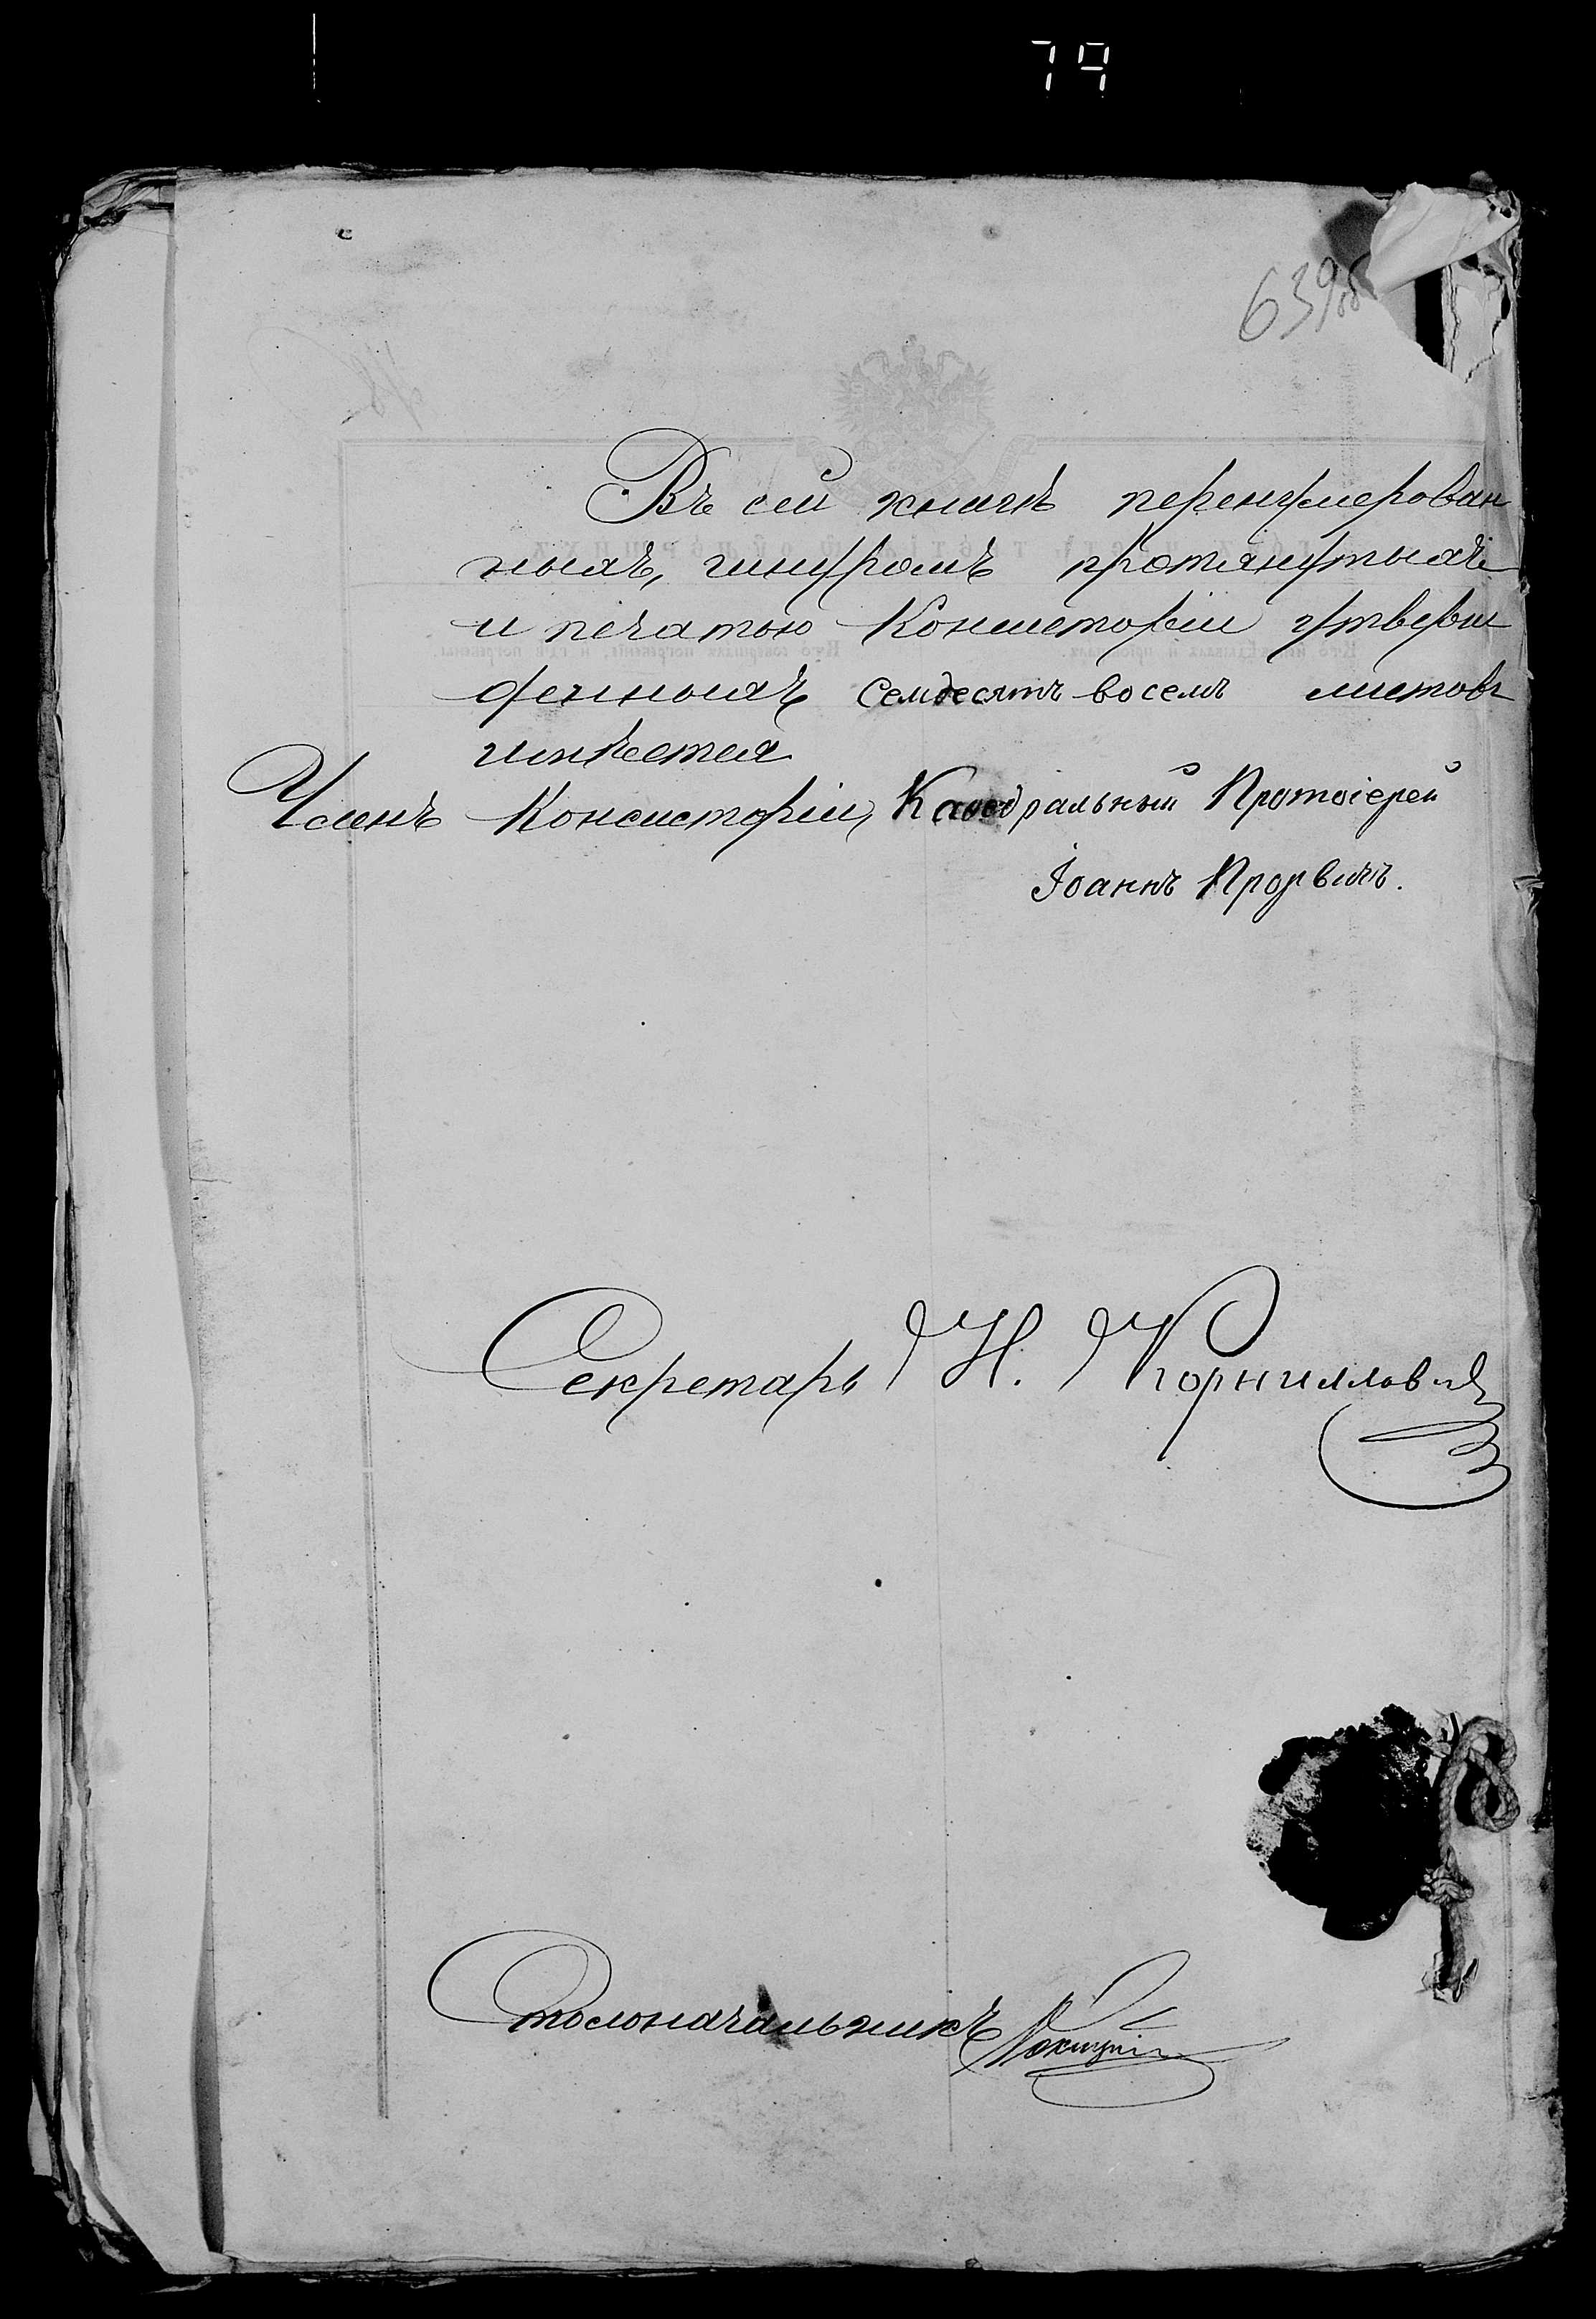 79
639об
Въ сей книгѣ перенумерован
ныхъ, шнуромъ протянутыхъ
и печатью Консисторіи утверж
денныхъ Семдесятъ восемъ листовъ
имѣется
Членъ Консисторіи, Каѳедральный Протоіерей
Іоаннъ Прорвичъ.
Секретарь Н. Корниллович
Столоначальникъ